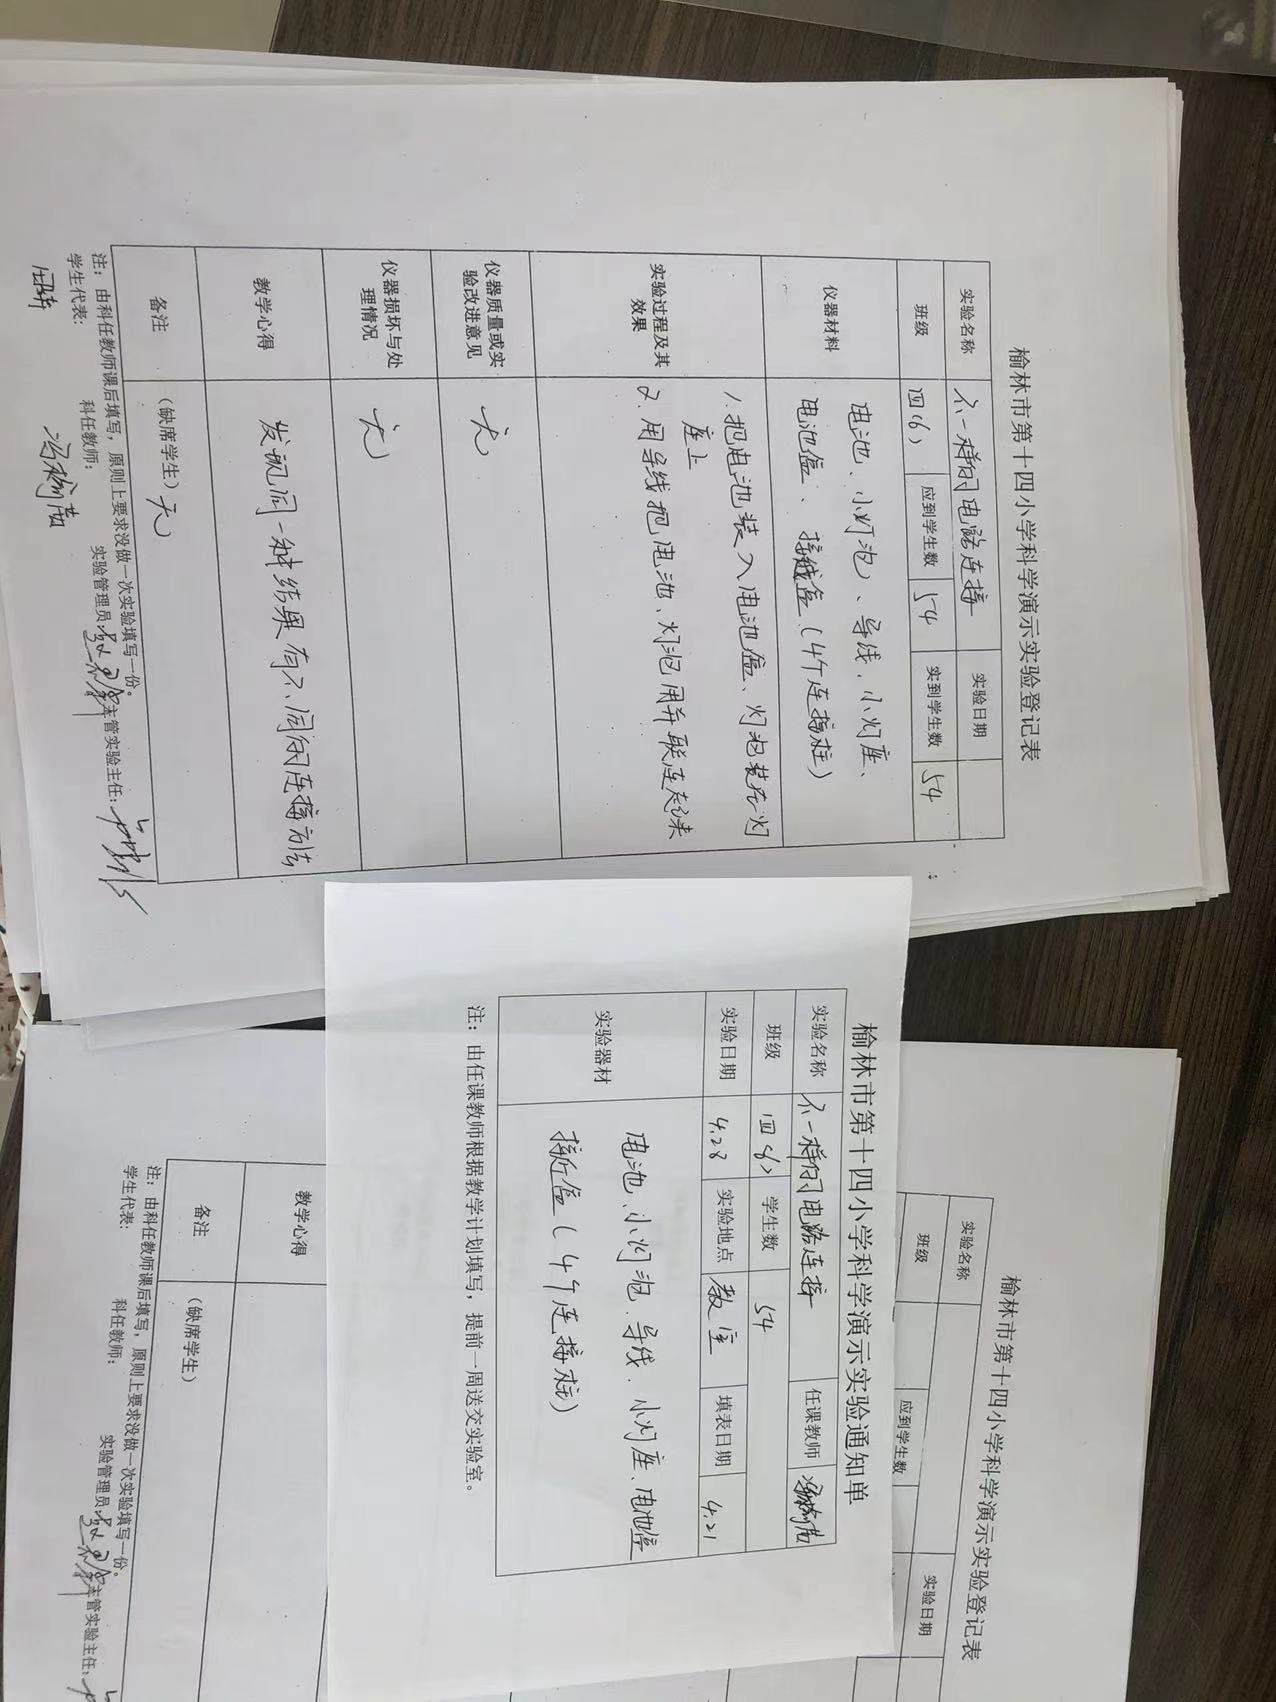 榆林市第十四小学科学演示实验登记表
实验名称 不一样的电路连接 实验日期
班级 四(6) 应到学生数 54 实到学生数 54
仪器材料 电池、小灯泡、导线、小灯座、
电池盒、接线盒(4个连接柱)
实验过程及其
效果
1.把电池装入电池盒、灯泡装在灯
座上
2.用导线把电池、灯泡用并联连起来
仪器质量或实
验改进意见 无
仪器损坏与处
理情况 无
教学心得 发现同一种结果有不同的连接方法
备注 (缺席学生) 无
注:由科任教师课后填写,原则上要求没做一次实验填写一份。
学生代表: 科任教师: 实验管理员: 主管实验主任:
榆林市第十四小学科学演示实验通知单
实验名称 不一样的电路连接 任课教师
班级 四(6) 学生数 54
实验日期 4.28 实验地点 教室 填表日期 4.21
实验器材 电池、小灯泡、导线、小灯座、电池盒
接线盒(4个连接柱)
注:由任课教师根据教学计划填写,提前一周送交实验室。
榆林市第十四小学科学演示实验登记表
实验名称 实验日期
班级 应到学生数
教学心得
备注 (缺席学生)
注:由科任教师课后填写,原则上要求没做一次实验填写一份。
学生代表: 科任教师: 实验管理员: 主管实验主任: